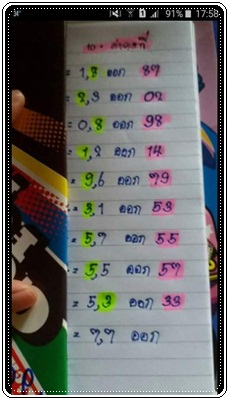 17:58
91%
= 1,8 ออก 89
= 8,3 ออก 02
= 0,8 ออก 98
= 1,8 ออก 14
= 9,6 ออก 79
= 3,1 ออก 53
= 5,7 ออก 55
= 5,5 ออก 57
= 5,3 ออก 33
= 7,7 ออก